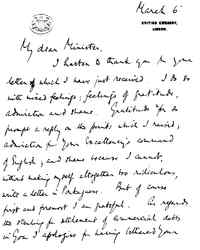 March 6
BRITISH EMBASSY,
LISBON.
My dear Minister,
I hasten to thank you for your
letter of which I have just received. I do so
with mixed feelings; feelings of gratitude,
admiration and shame. Gratitude for so
prompt a reply on the points which I raised,
admiration for Your Excellency's command
of English, and shame because I cannot,
without making myself altogether too ridiculous,
write a letter in Portuguese. But of course
first and foremost I am grateful. As regards
the standing for settlement of commercial debts
in I apologise for having bothered Your